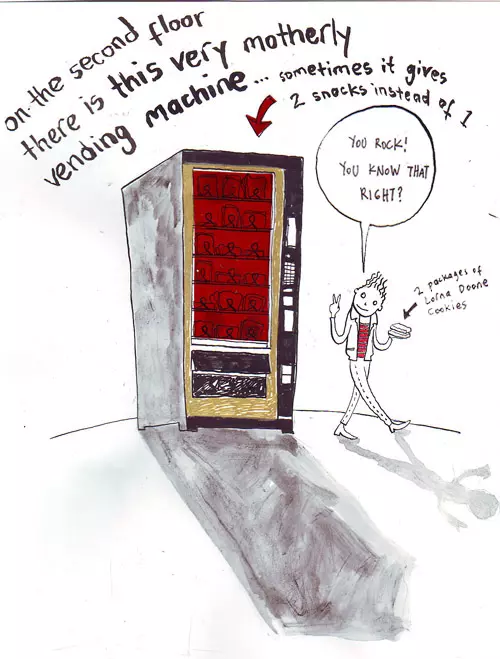 on the second floor
there is this very motherly
vending machine... sometimes it gives
2 snacks instead of 1
YOU ROCK!
YOU KNOW THAT
RIGHT?
2 packages of
Lorna Doone
Cookies